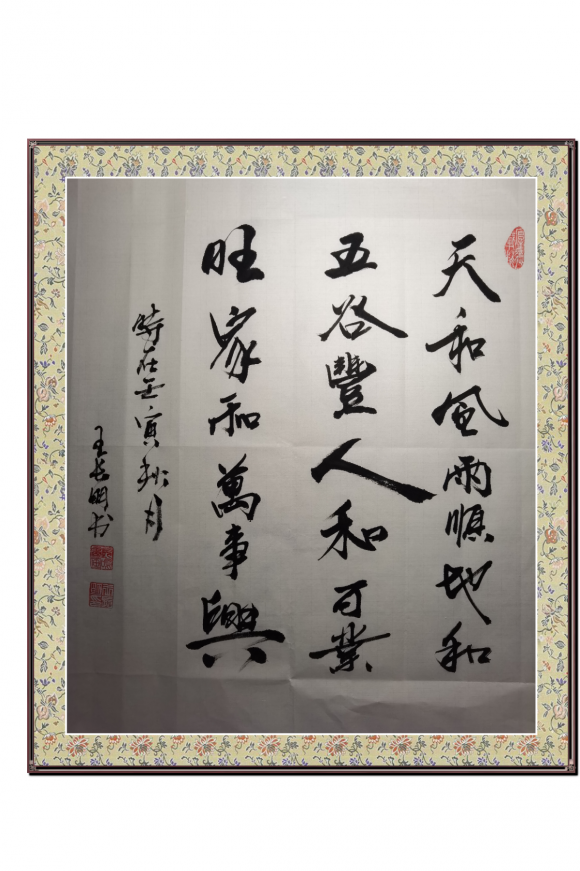 天和風雨順地和
五谷豐人和百業
旺家和萬事興
時在壬寅秋月
王長明书